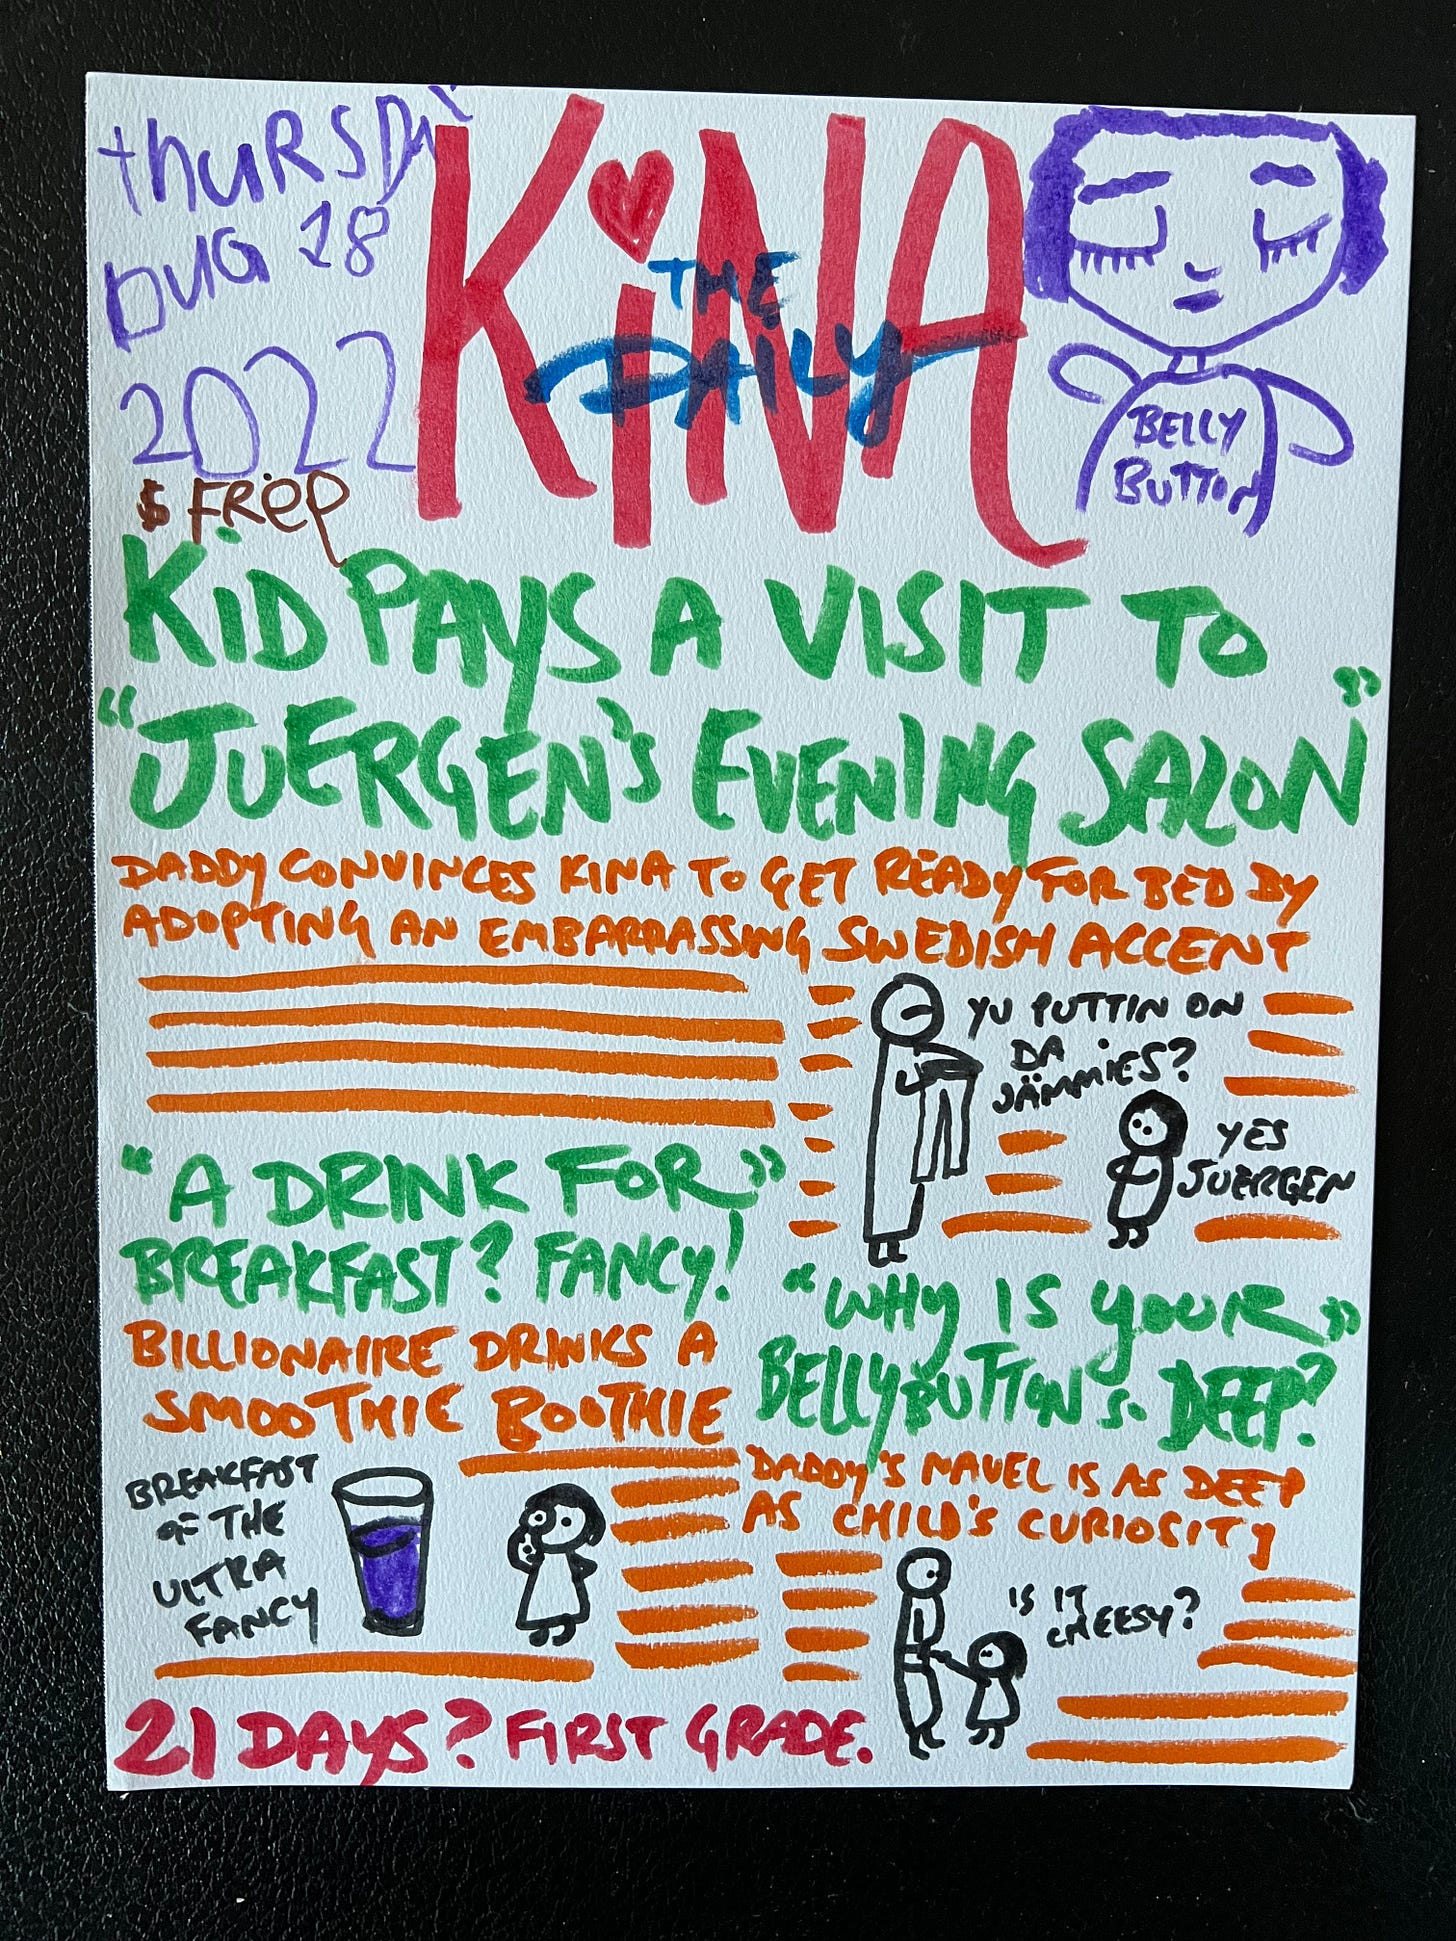 THURSDAY
AUG 18
2022
$ FREP
THE
DAILY
KiNA
BELLY
BUTTON
KiD PAYS A VISIT TO
"JUERGEN'S EVENING SALON"
DADDY CONVINCES KINA TO GET READY FOR BED BY
ADOPTING AN EMBARRASSING SWEDISH ACCENT
YU PUTTIN ON
DA
JÄMMIES?
YES
JUERGEN
"A DRINK FOR"
BREAKFAST? FANCY!
BILLIONAIRE DRINKS A
SMOOTHIE BOOTHIE
BREAKFAST
OF THE
ULTRA
FANCY
"WHY IS YOUR"
BELLYBUTTON So DEEP?
DADDY'S NAVEL IS AS DEEP
AS CHILD'S CURIOSITY
IS IT
CHEESY?
21 DAYS? FIRST GRADE.